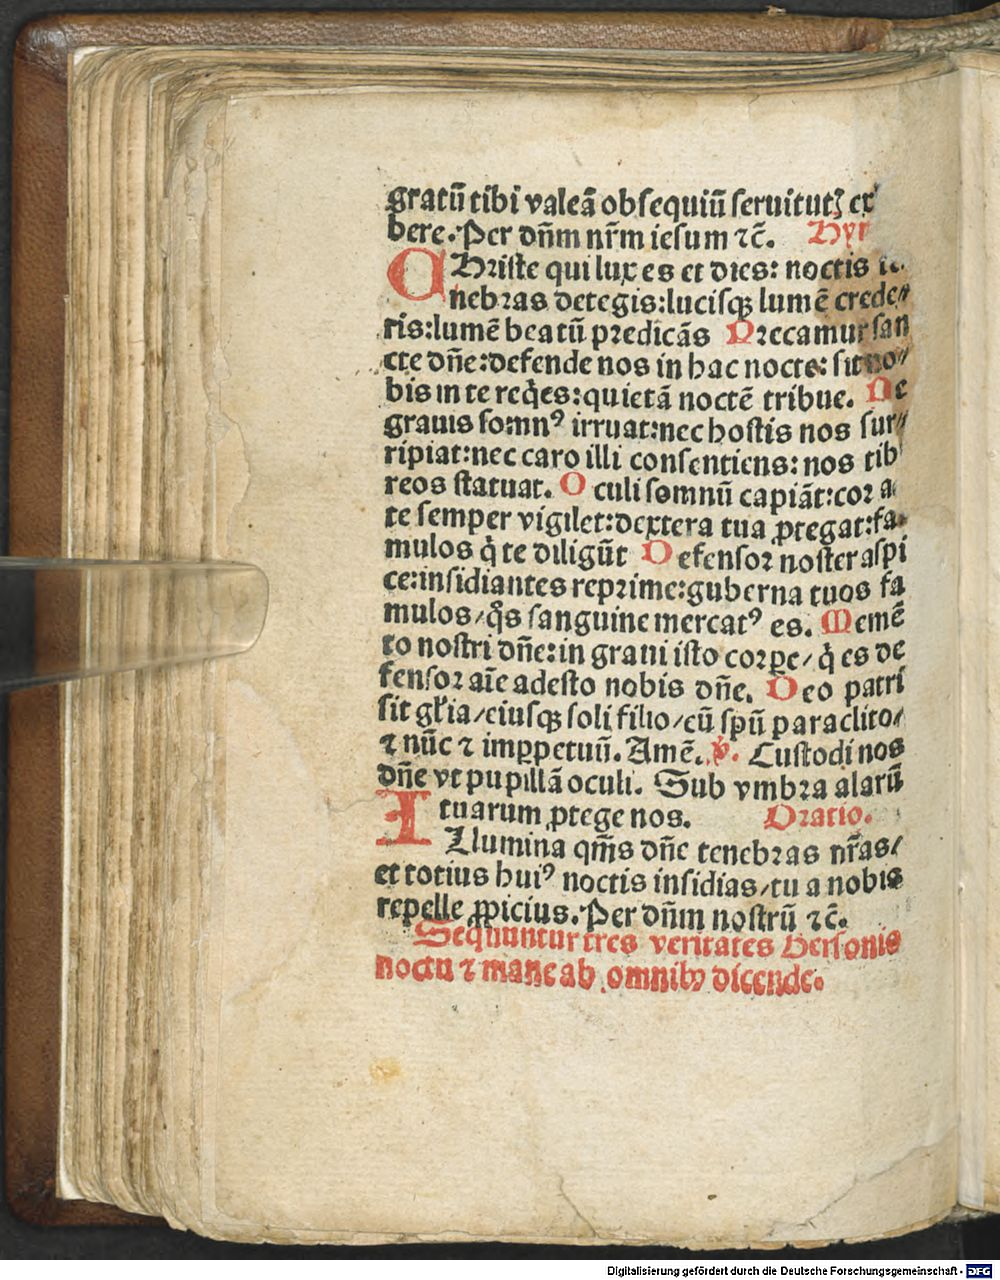 gratū tibi valeā obsequiū seruitutꝫ ex
bere. Per dñm nr̄m iesum ⁊c̄. Hyr
CHriste qui lux es et dies: noctis te
nebras detegis: lucisqꝫ lumē crede⸗
ris: lumē beatū predicās Precamur san
cte dñe: defende nos in hac nocte: sit no⸗
bis in te reqͥes: quietā noctē tribue. Ne
grauis somnꝰ irruat: nec hostis nos sur⸗
ripiat: nec caro illi consentiens: nos tibi
reos statuat. Oculi somnū capiāt: cor a
te semper vigilet: dextera tua ꝓtegat: fa
mulos qͥ te diligūt Defensor noster aspi
ce: insidiantes reprime: guberna tuos fa
mulos/ qͦs sanguine mercatꝰ es. Memē
to nostri dñe: in graui isto corpe/ qͥ es de
fensor aīe adesto nobis dñe. Deo patri
sit glīa/ eiusqꝫ soli filio/ cū spū paraclito/
⁊ nūc ⁊ imꝑpetuū. Amē. ℣. Custodi nos
dñe vt pupillā oculi. Sub vmbra alarū
tuarum ꝓtege nos. Oratio.
ILlumina qm̄s dñe tenebras nr̄as/
et totius huiꝰ noctis insidias/ tu a nobis
repelle ꝓpicius. Per dñm nostrū ⁊c̄.
Sequuntur tres veritates Gersonis
noctu ⁊ mane ab omnibꝫ dicende.
Digitalisierung gefördert durch die Deutsche Forschungsgemeinschaft - DFG